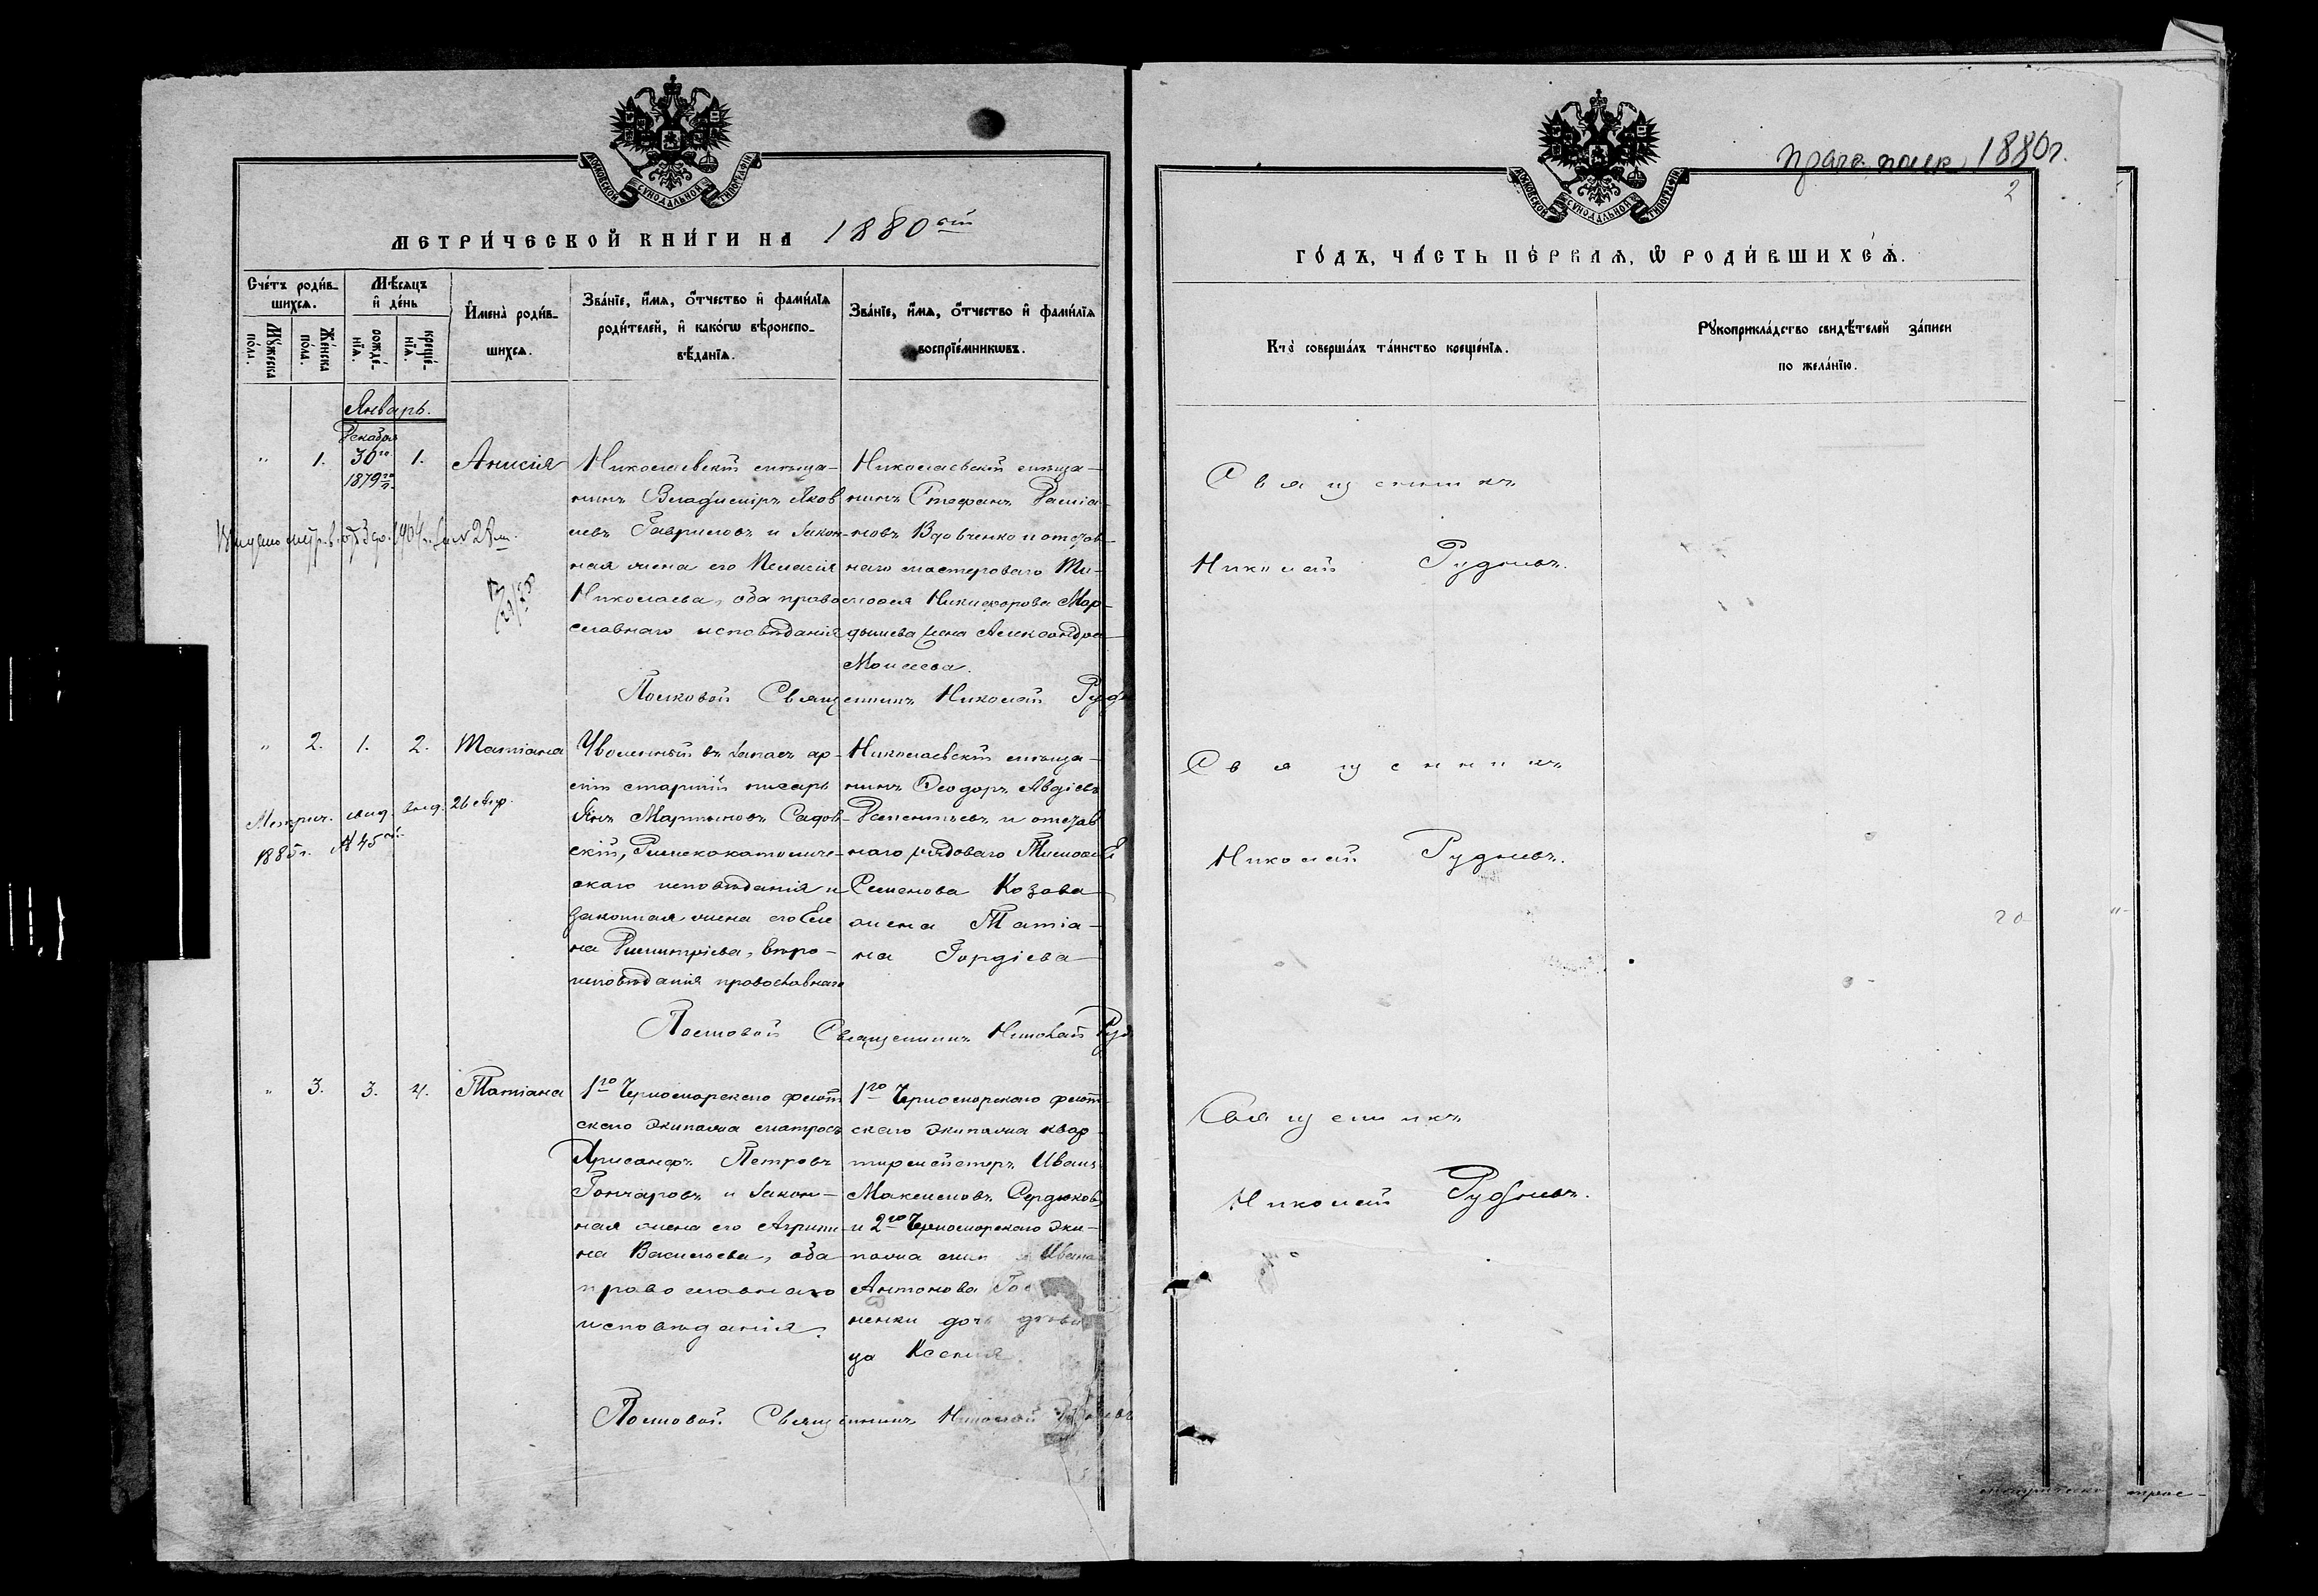 МОСКОВСКОЙ СѴНОДАЛЬНОЙ ТИПОГРАФІИ
МЕТРИ́ЧЕСКОЙ КНИ́ГИ НА 1880 ый
Сче́тъ роди́в-
шихся.
Му́жеска по́ла.
Же́нска по́ла.
Мѣ́сяцъ
и҆ де́нь
рожде́-
нїя.
креще́-
нїя.
И҆мена̀ роди́в-
шихся.
Зва́нїе, и҆́мя, ѻ҆́тчество и҆ фами́лїя
роди́телей, и҆ како́гѡ вѣроиспо-
вѣ́данїя.
Зва́нїе, и҆́мя, ѻ҆́тчество и҆ фами́лїя
воспрїе́мникѡвъ.
Январь.
Декабря
„ 1. 30го 1. Анисія
1879го г.
Николаевскій мѣща-
нинъ Владиміръ Яков
левъ Гавриловъ и закон-
ная жена его Пелагія
Николаева, оба право
славнаго исповѣданія
Николаевскій мѣща-
нинъ Стефанъ Даміа-
новъ Вдовченко и отстав-
наго мастероваго Ти-
моѳея Никифорова Мор-
жена Александра
Моисеева.
Полковой Священникъ Николай
„ 2. 1. 2. Татіана
Метрич. свид. выд. 26 
1885 г. № 45
Уволенный въ запасъ ар-
міи старшій писарь
Янъ Мартыновъ Садов-
скій, Римскокатоличе-
скаго исповѣданія и
законная жена его Еле
на Димитріева, вѣро-
исповѣданія православнаго
Николаевскій мѣща-
нинъ Ѳеодоръ Авдіевъ
и отстав
наго рядоваго Тимоѳея
Семенова Козова
жена Татіа-
на Гордіева
Полковой Священникъ Николай
„ 3. 3. 4. Татіана
1го Черноморскаго флот
скаго Экипажа матросъ
Хрисанфъ Петровъ
Гончаровъ и закон-
ная жена его Агрипи-
на Васильева, оба
православнаго
исповѣданія.
1го Черноморскаго флот-
скаго Экипажа квар-
тирмейстеръ Иванъ
Максимовъ Сердюковъ
и 2го Черноморскаго Эки-
пажа Ивана
Антонова
ненки дочь дѣви
ца Ксенія.
Полковой Священникъ Николай
МОСКОВСКОЙ СѴНОДАЛЬНОЙ ТИПОГРАФІИ
1880 г.
2
ГО́ДЪ, ЧА́СТЬ ПЕ́РВАЯ, Ѽ РОДИ́ВШИХСЯ.
Кто̀ соверша́лъ та́инство креще́нїя.
Рꙋкоприкла́дство свидѣ́телей за́писи
по жела́нїю.
Священникъ
Николай Рудневъ.
Священникъ
Николай Рудневъ.
20
Священникъ
Николай Рудневъ.